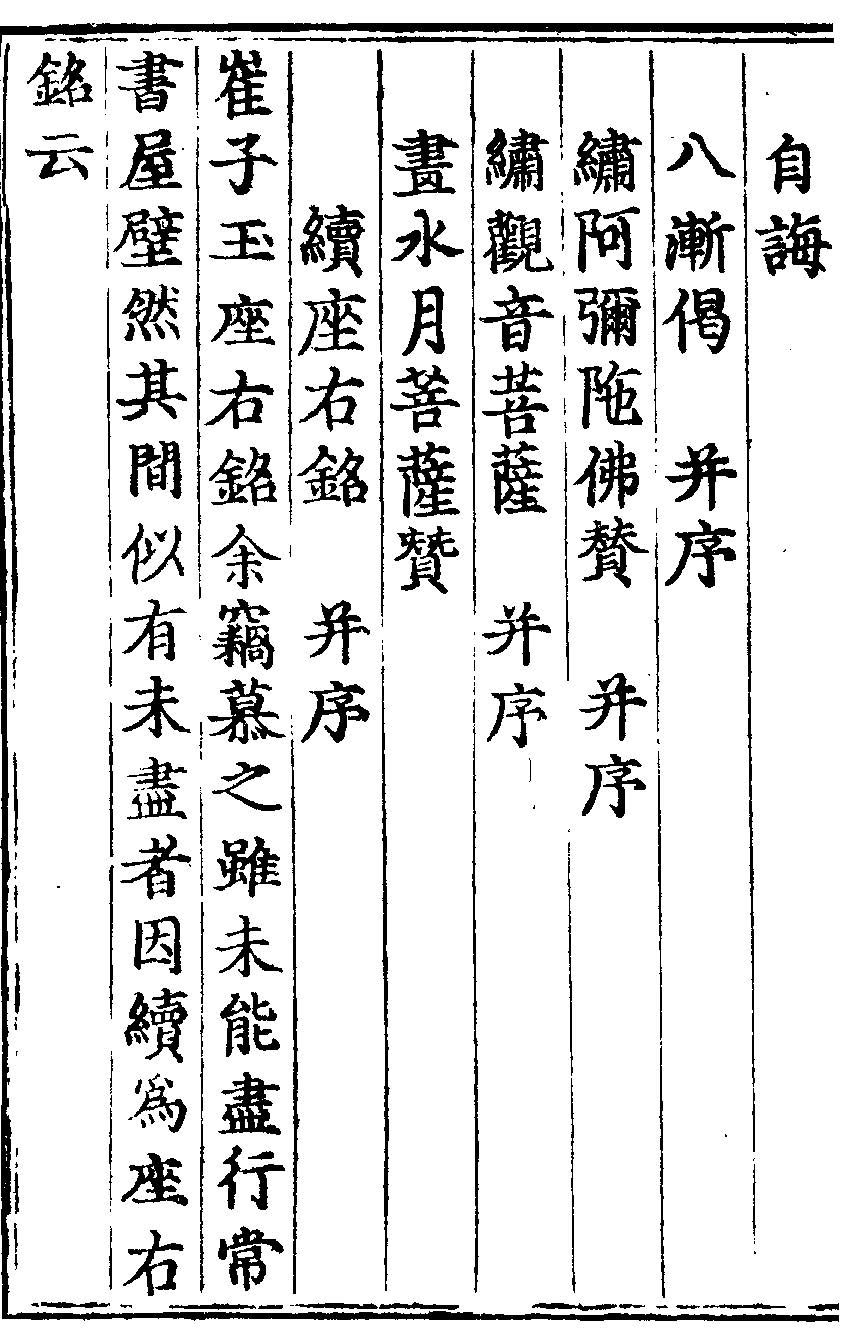 自誨
八漸偈　并序
繡阿彌陁佛賛　并序
繡觀音菩薩　并序
畫水月菩薩賛
續座右銘　并序
崔子玉座右銘余竊慕之雖未能盡行常
書屋壁然其間似有未盡者因續爲座右
銘云